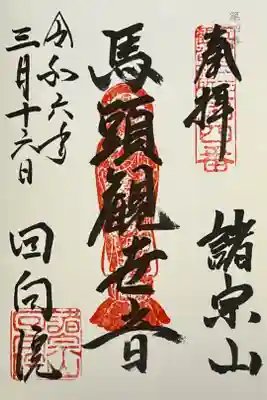 奉拝
諸宗山
馬頭観世音
令和六年
三月十六日
回向院